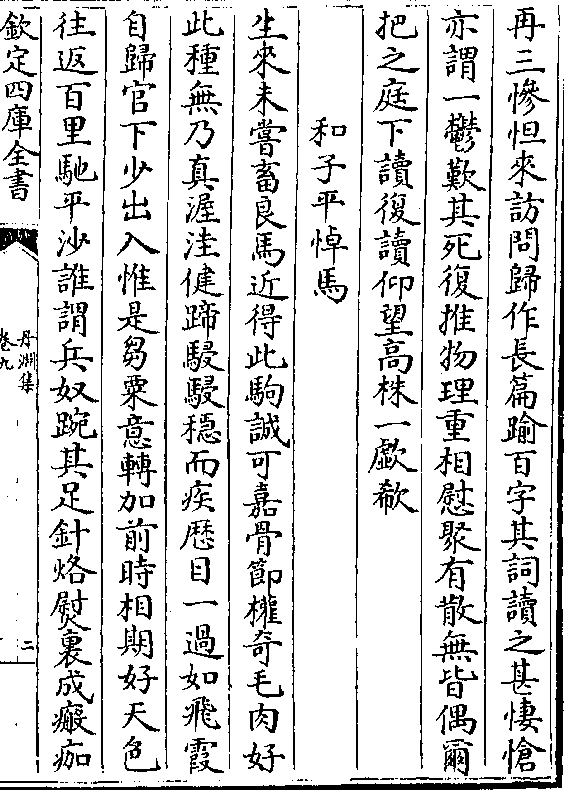 再三慘怛來訪問歸作長篇踰百字其詞讀之甚悽愴
亦謂一鬱歎其死復推物理重相慰聚有散無皆偶爾
把之庭下讀復讀仰望高株一歔欷
和子平悼馬
生來未嘗畜良馬近得此駒誠可嘉骨節權奇毛肉好
此種無乃真渥洼健蹄駸駸穩而疾歴目一過如飛霞
自歸官下少出入惟是芻粟意轉加前時相期好天色
往返百里馳平沙誰謂兵奴踠其足針烙熨裹成瘢痂
欽定四庫全書
丹淵集
卷九
二